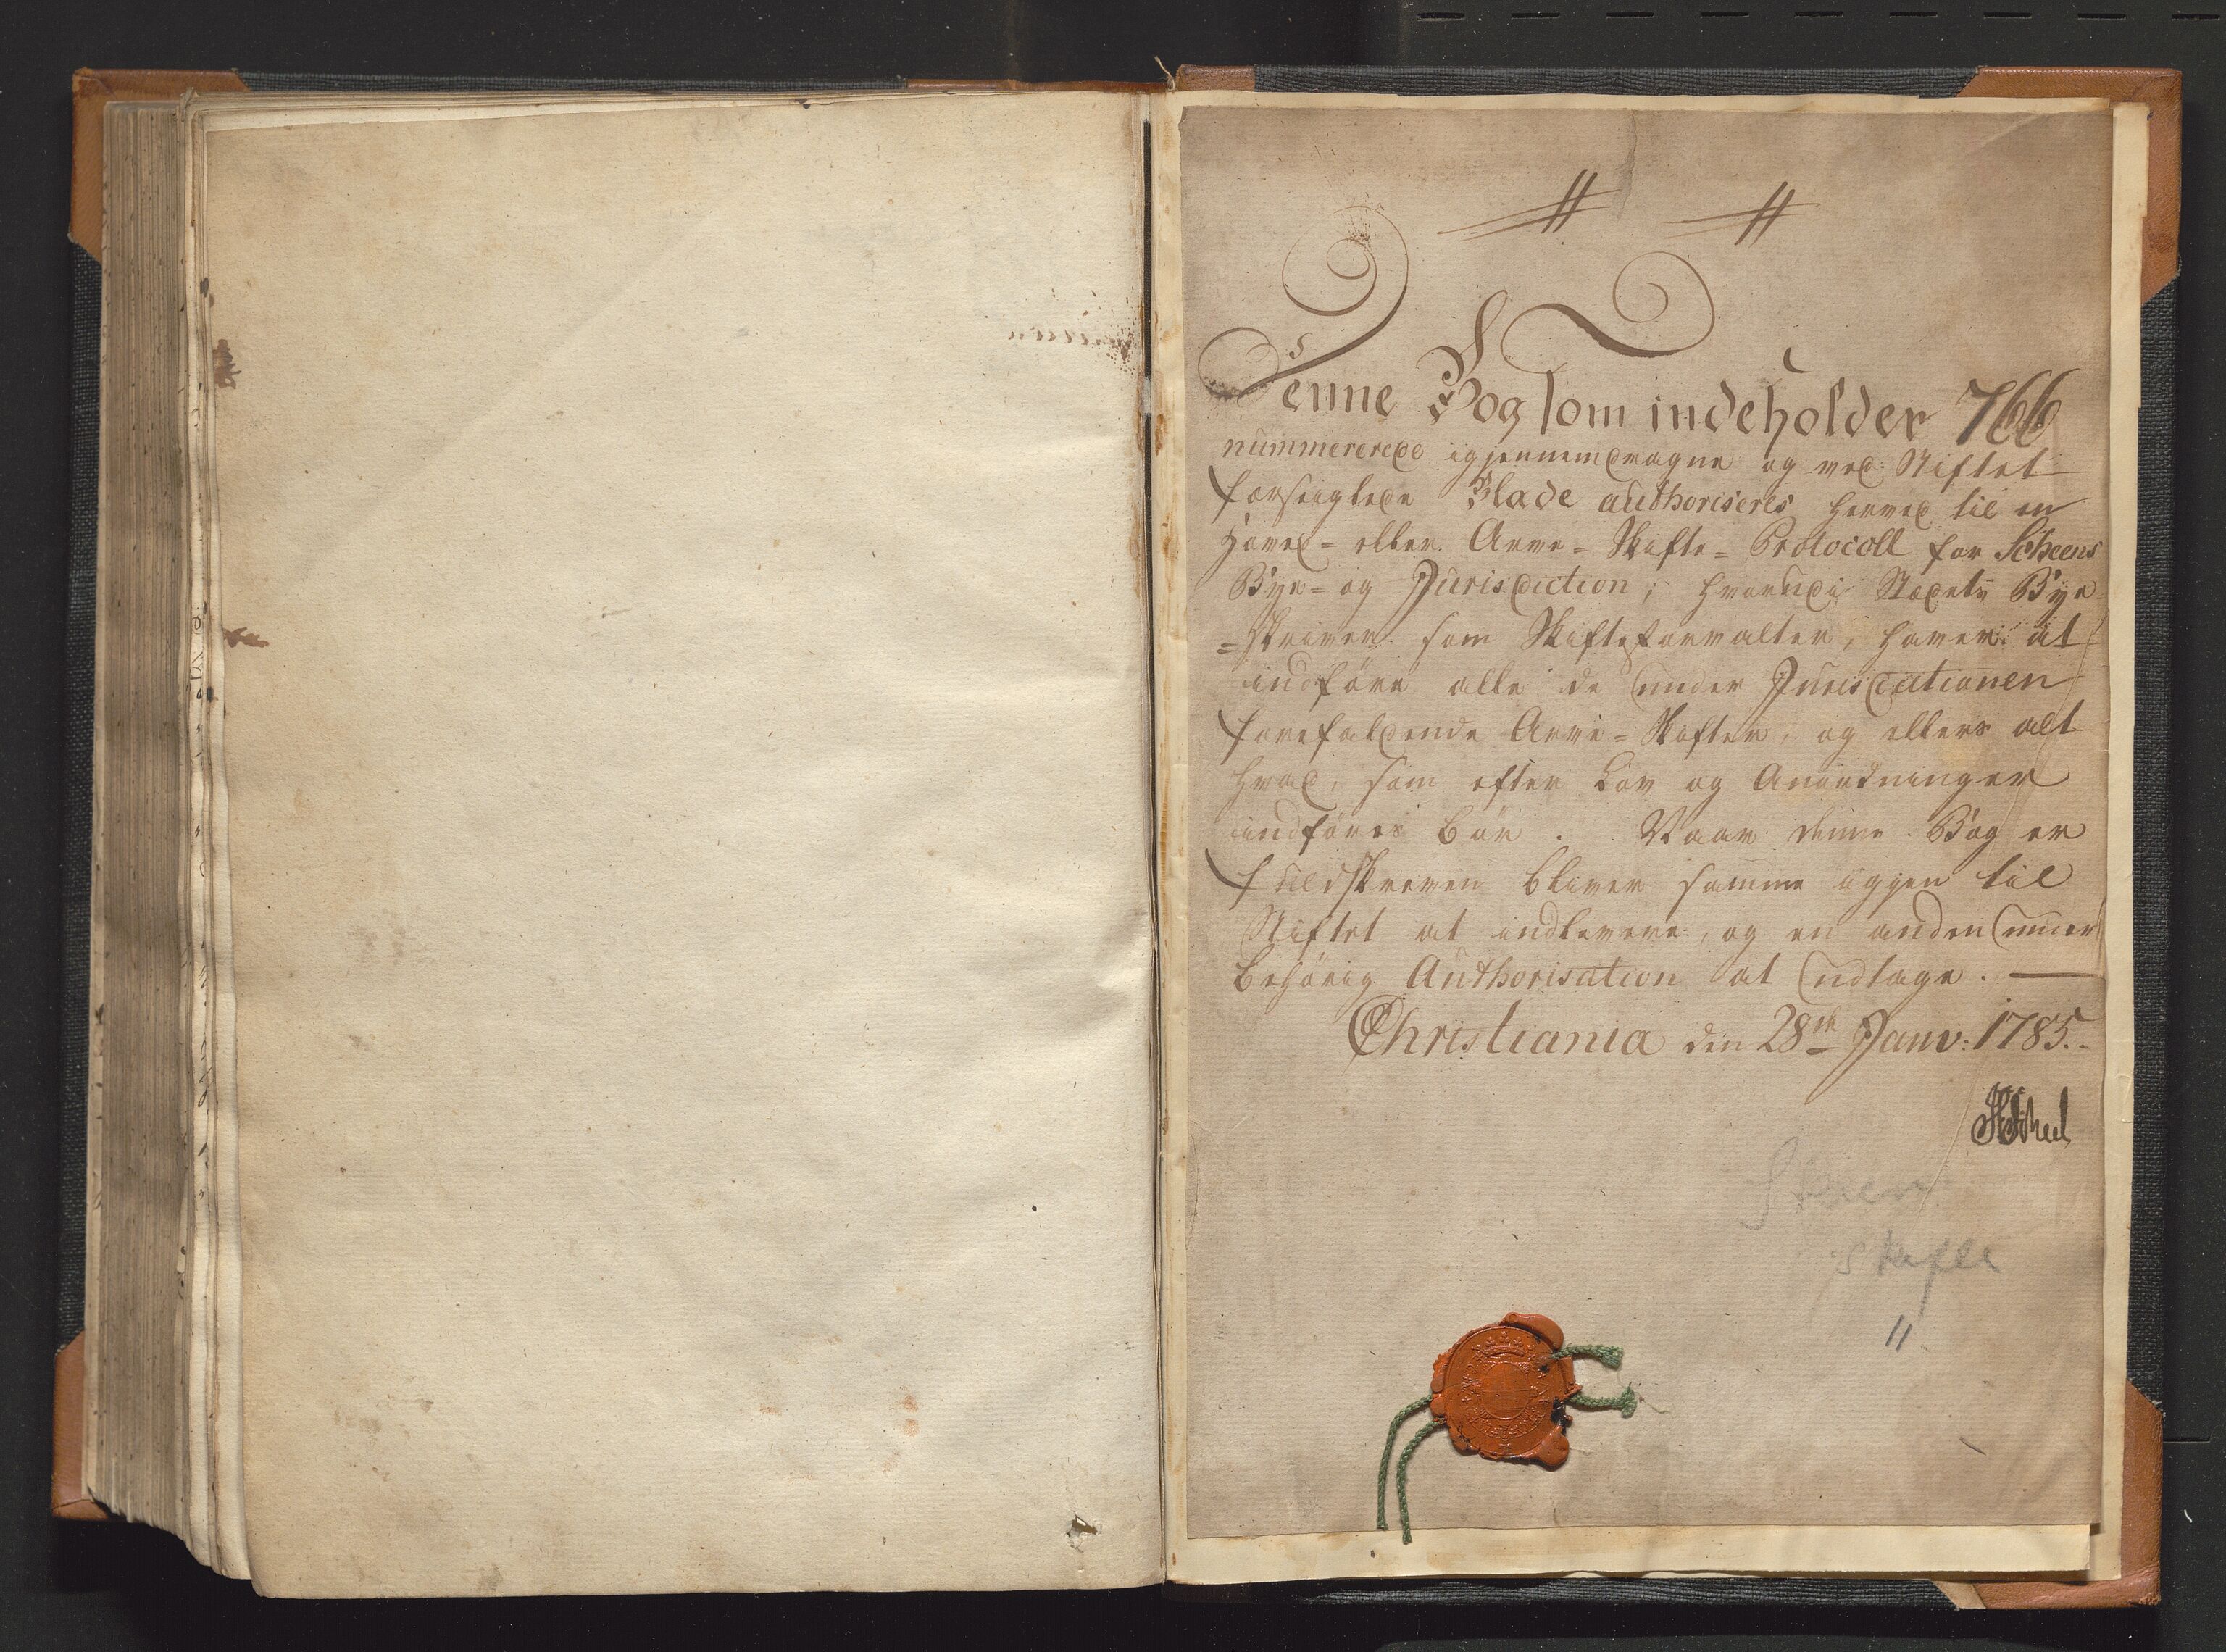 Denne Bog som indeholder 766
nummererede igjennemdragne og ved Stiftet
forseiglede Blade authoriseres herved til en
Hoved- eller Arve-Skifte-Protocoll for Scheens
Bye- og Jurisdiction; hvorudi Stædets Bye-
=skriver som Skifteforvalter, haver at
indföre alle de under Jurisdictionen
forefaldende Arve-Skifter, og ellers alt
hvad, som efter Lov og Anordninger
indföres bör. Naar denne Bog er
fuldskreven bliver samme igjen til
Stiftet at indlevere, og en anden under
behörig Authorisation at udtage. —
Christiania den 28de Janv: 1785.-
Skien
Skifte
11